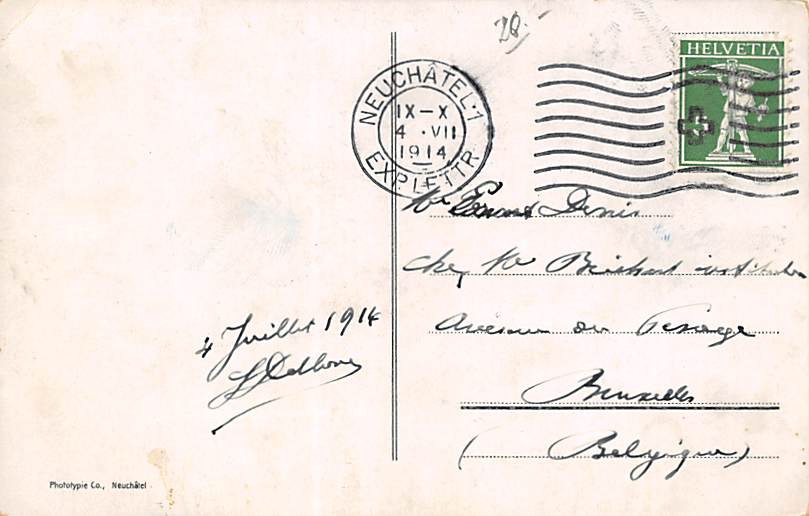 28.-
HELVETIA
NEUCHÂTEL-1
IX-X
4 · VII
1914
EXP. LETTR.
Denis
chez Mr
Avenue du
Bruxelles
(Belgique)
4 Juillet 1914
Phototypie Co., Neuchâtel